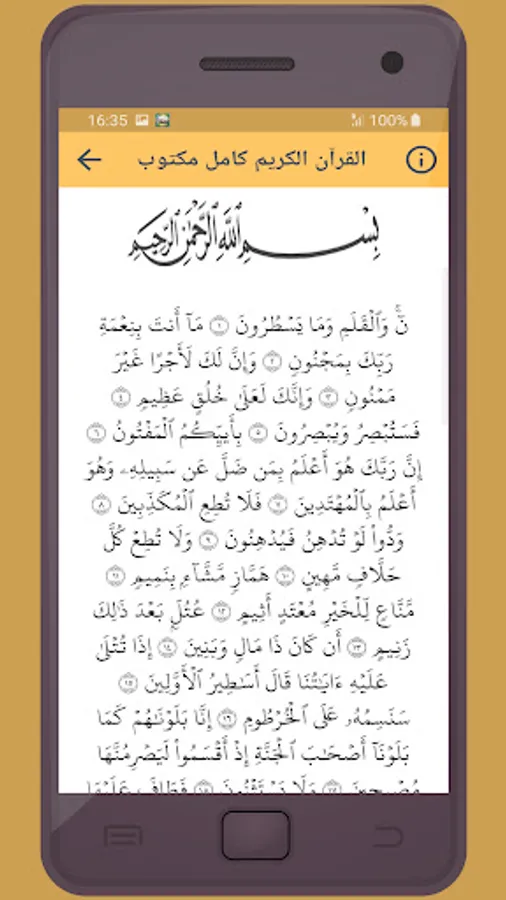 16:35 100%
القرآن الكريم كامل مكتوب
بِسْمِ ٱللَّهِ ٱلرَّحْمَٰنِ ٱلرَّحِيمِ
نٓ ۚ وَٱلْقَلَمِ وَمَا يَسْطُرُونَ ١ مَآ أَنتَ بِنِعْمَةِ
رَبِّكَ بِمَجْنُونٍ ٢ وَإِنَّ لَكَ لَأَجْرًا غَيْرَ
مَمْنُونٍ ٣ وَإِنَّكَ لَعَلَىٰ خُلُقٍ عَظِيمٍ ٤
فَسَتُبْصِرُ وَيُبْصِرُونَ ٥ بِأَييِّكُمُ ٱلْمَفْتُونُ ٦
إِنَّ رَبَّكَ هُوَ أَعْلَمُ بِمَن ضَلَّ عَن سَبِيلِهِۦ وَهُوَ
أَعْلَمُ بِٱلْمُهْتَدِينَ ٧ فَلَا تُطِعِ ٱلْمُكَذِّبِينَ ٨
وَدُّوا۟ لَوْ تُدْهِنُ فَيُدْهِنُونَ ٩ وَلَا تُطِعْ كُلَّ
حَلَّافٍ مَّهِينٍ ١٠ هَمَّازٍ مَّشَّآءٍ بِنَمِيمٍ ١١
مَّنَّاعٍ لِّلْخَيْرِ مُعْتَدٍ أَثِيمٍ ١٢ عُتُلٍّۭ بَعْدَ ذَٰلِكَ
زَنِيمٍ ١٣ أَن كَانَ ذَا مَالٍ وَبَنِينَ ١٤ إِذَا تُتْلَىٰ
عَلَيْهِ ءَايَٰتُنَا قَالَ أَسَٰطِيرُ ٱلْأَوَّلِينَ ١٥
سَنَسِمُهُۥ عَلَى ٱلْخُرْطُومِ ١٦ إِنَّا بَلَوْنَٰهُمْ كَمَا
بَلَوْنَآ أَصْحَٰبَ ٱلْجَنَّةِ إِذْ أَقْسَمُوا۟ لَيَصْرِمُنَّهَا
مُصْبِحِينَ ١٧ وَلَا يَسْتَثْنُونَ ١٨ فَطَافَ عَلَيْهَا